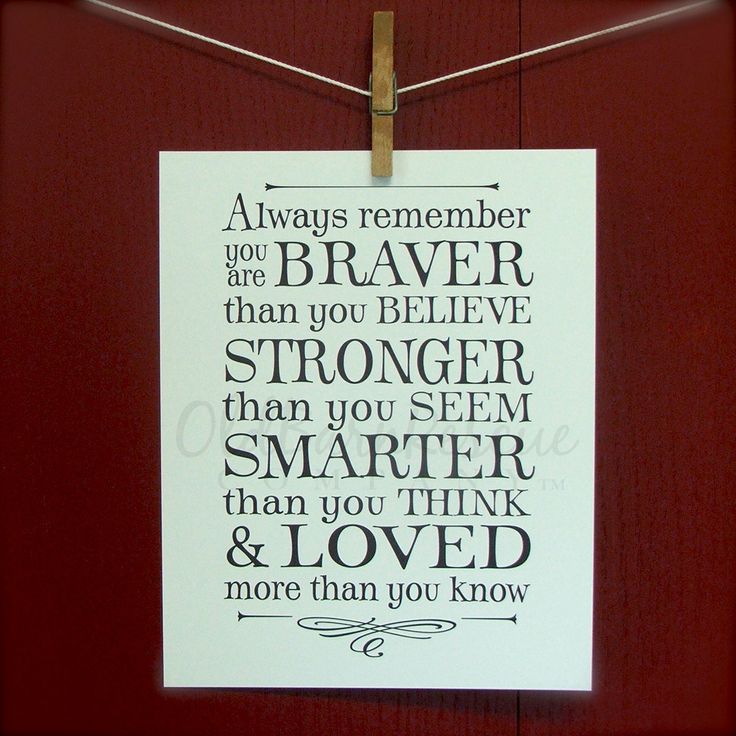 Always remember
you are BRAVER
than you BELIEVE
STRONGER
than you SEEM
OldBarnRescue
SMARTER
COMPANY™
than you THINK
& LOVED
more than you know